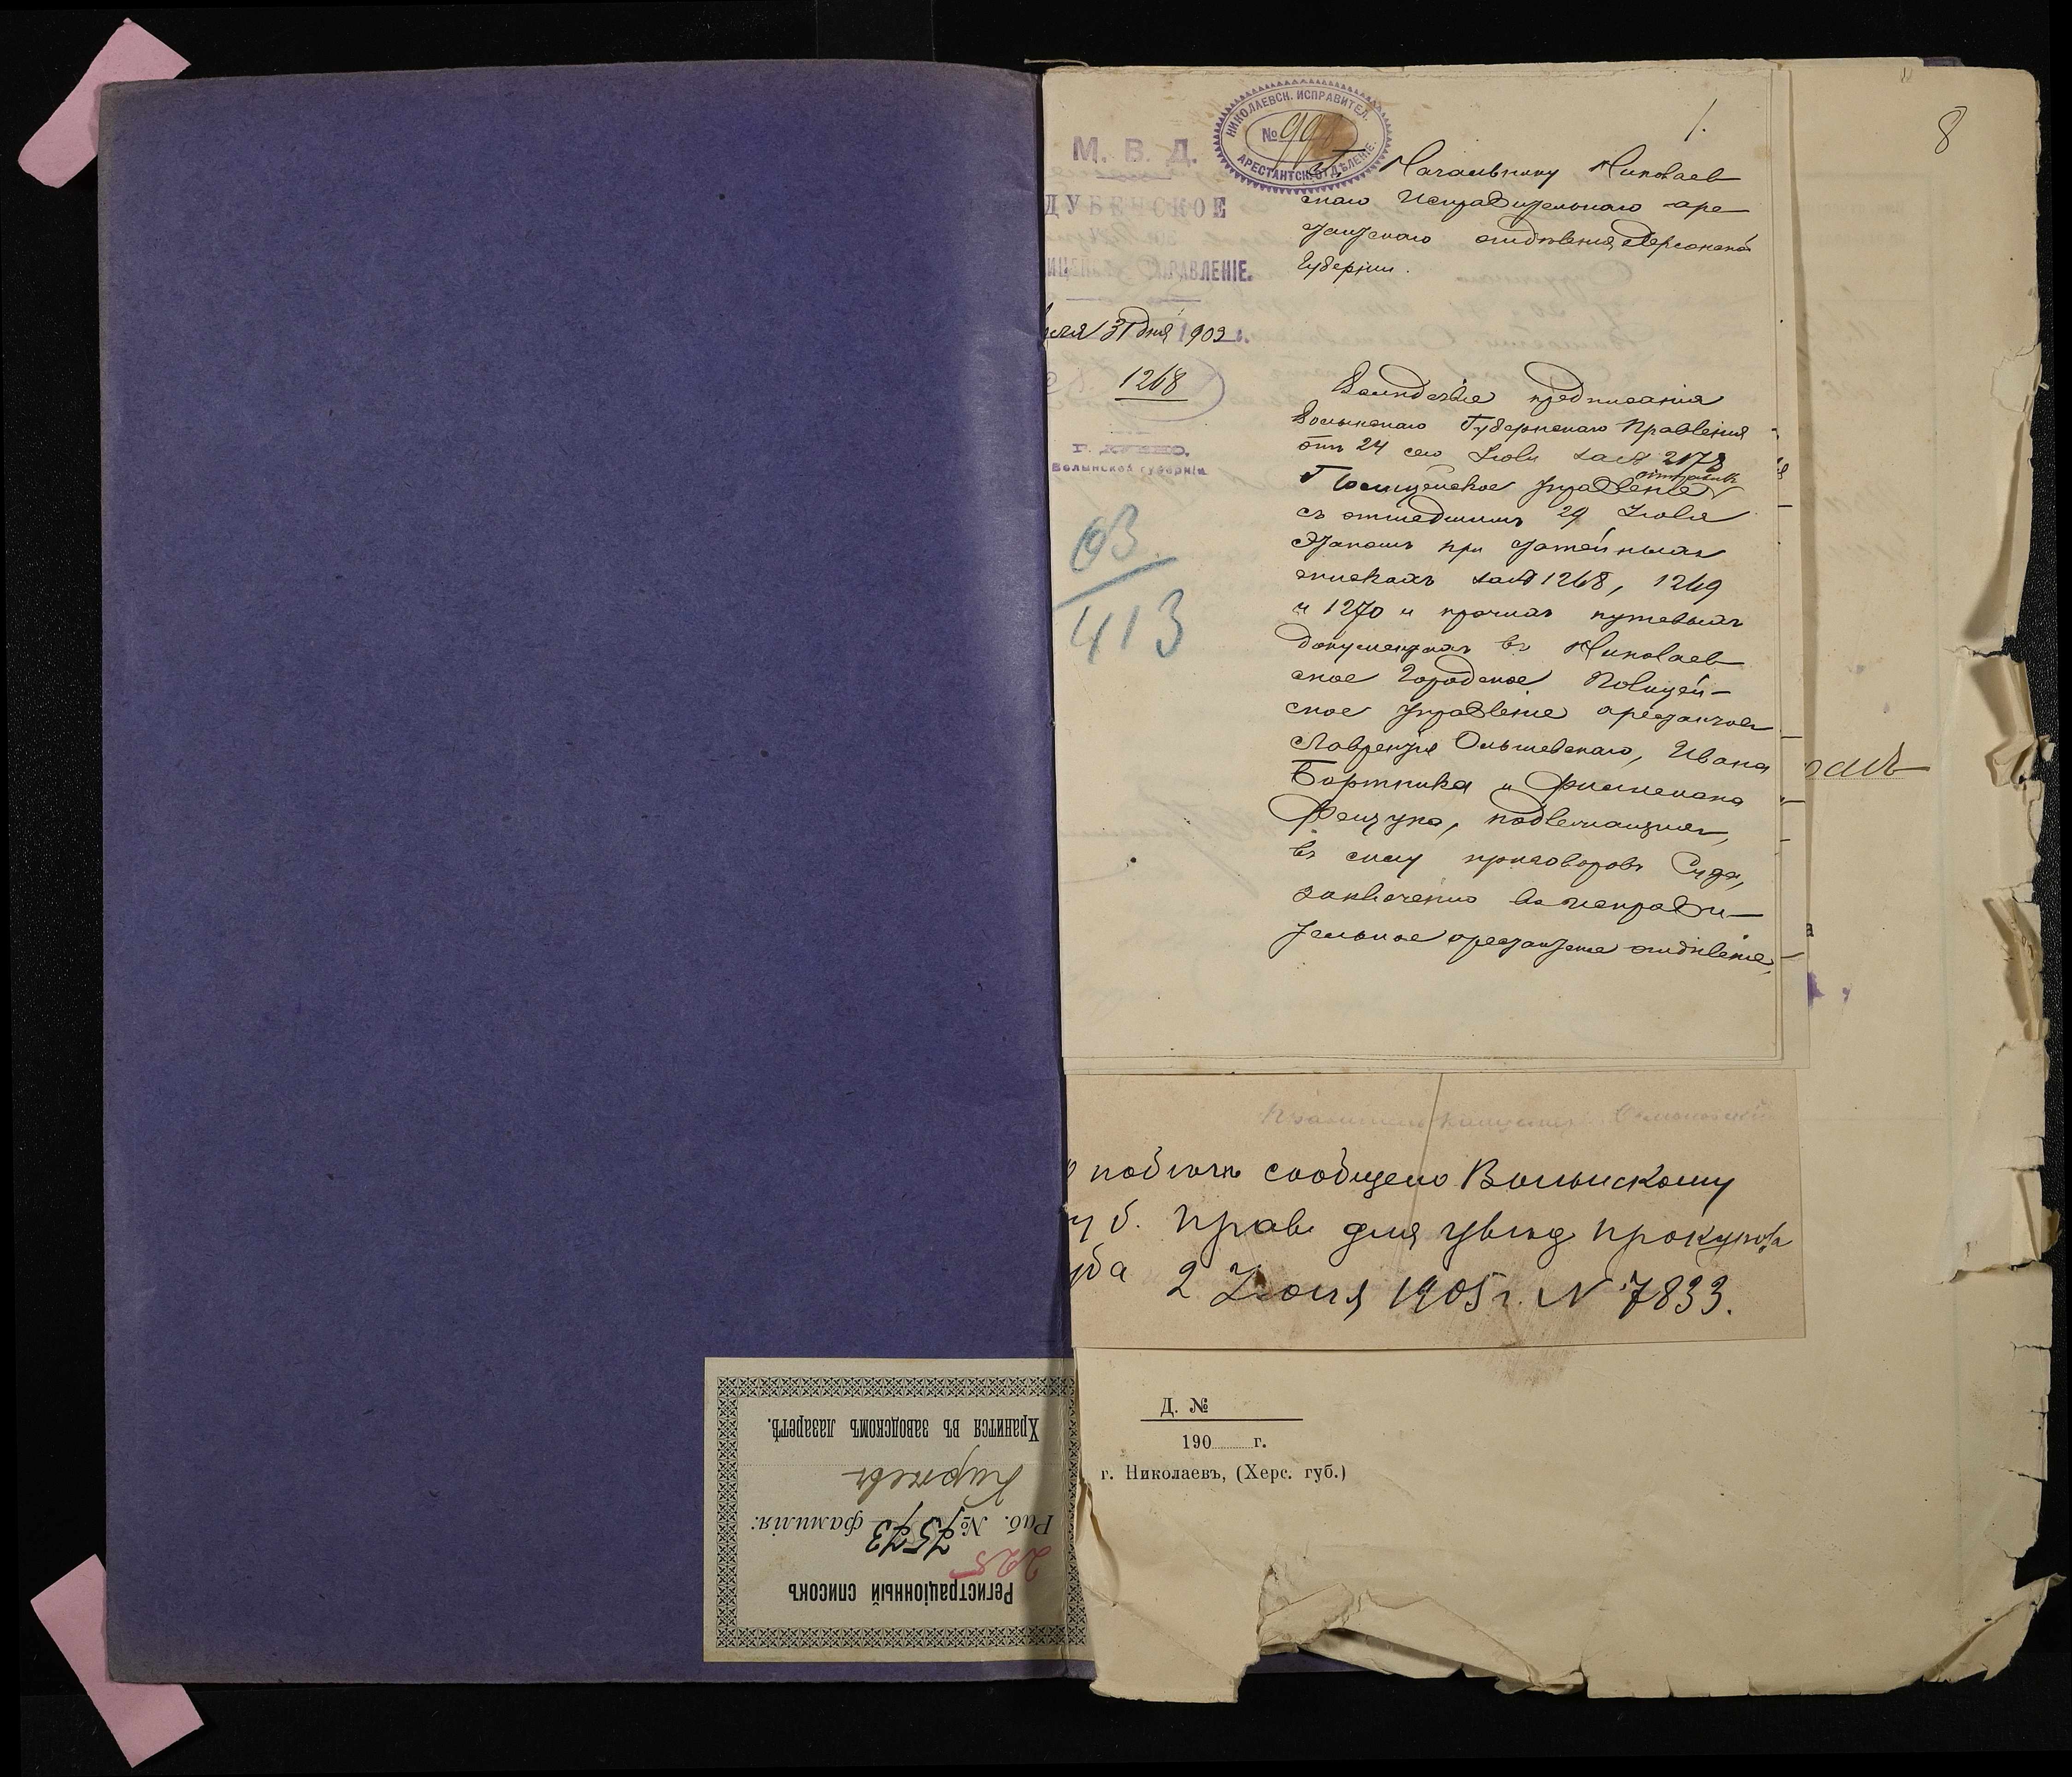 НИКОЛАЕВСК. ИСПРАВИТЕЛ.
№ 99
АРЕСТАНТСК. ОТДѢЛЕНІЕ.
1.
8
М. В. Д.
ДУБЕНСКОЕ
ИЦЕЙСКОЕ УПРАВЛЕНІЕ.
31 дня 1903 г.
1268
Г. ДУБНО.
Волынской губерніи.
63
413
Г. Начальнику Николаев
скаго Исправительнаго аре
стантскаго отдѣленія Херсонской
Губерніи.
Вслѣдствіе предписанія
Волынскаго Губернскаго Правленія
отъ 24 сего Іюля за № 2178
Полицейское Управленіе отправило
съ отшедшимъ 29 Іюля
этапомъ при статейныхъ
спискахъ за № 1268, 1269
и 1270 и прочихъ путевыхъ
документахъ въ Николаев
ское Городское Полицей-
ское Управленіе арестантовъ
Лаврентія Ольшевскаго, Ивана
Бортника и Филимона
подлежащихъ,
въ силу приговоровъ Суда,
заключенію въ исправи-
тельное арестантское отдѣленіе,
раль
побѣгѣ сообщено Волынскому
уб. Прав. для увѣд прокурора
уда 2 Іюля 1905 г. № 7833.
Д. №
190 г.
г. Николаевъ, (Херс. губ.)
Регистраціонный списокъ
225
Раб. № 7573 фамилія:
Хранится въ заводскомъ лазаретѣ.